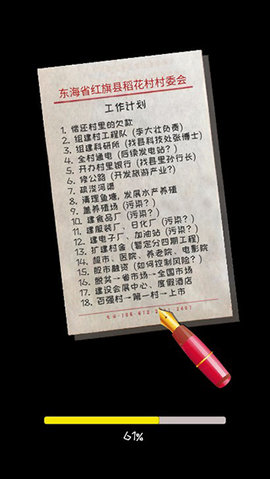 东海省红旗县稻花村村委会
工作计划
1. 偿还村里的欠款
2. 组建村工程队 (李大壮负责)
3. 组建科研所 (找县科技处张博士)
4. 全村通电 (后续发电站?)
5. 开办村里银行 (找县里孙行长)
6. 修公路 (开发旅游业?)
7. 疏浚河道
8. 清理鱼塘, 发展水产养殖
9. 盖养殖场 (污染?)
10. 建食品厂 (污染?)
11. 建服装厂、日化厂 (污染?)
12. 建电子厂、加油站 (污染?)
13. 扩建村舍 (暂定分四期工程)
14. 超市、医院、养老院、电影院
15. 股市融资 (如何控制风险?)
16. 脱贫→省市场→全国市场
17. 建设会展中心、度假酒店
18. 百强村→第一村→上市
61%